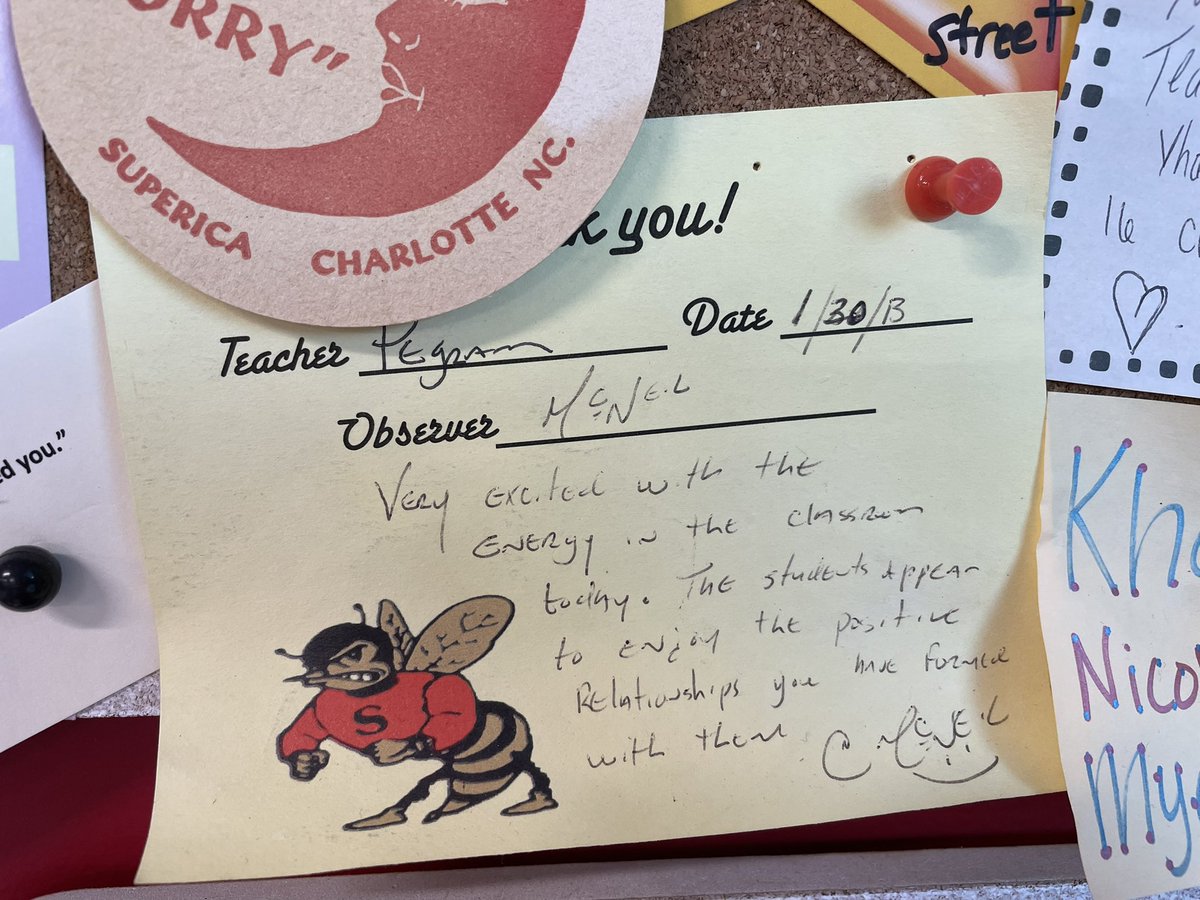 ORRY"
SUPERICA CHARLOTTE NC.
street
k you!
Teacher Pegram
Date 1/30/13
Observer McNeil
Very excited with the
energy in the classroom
today. The students appear
to enjoy the positive
relationships you have formed
with them C. McNeil
S
ed you."
16
Kh
Nico
My